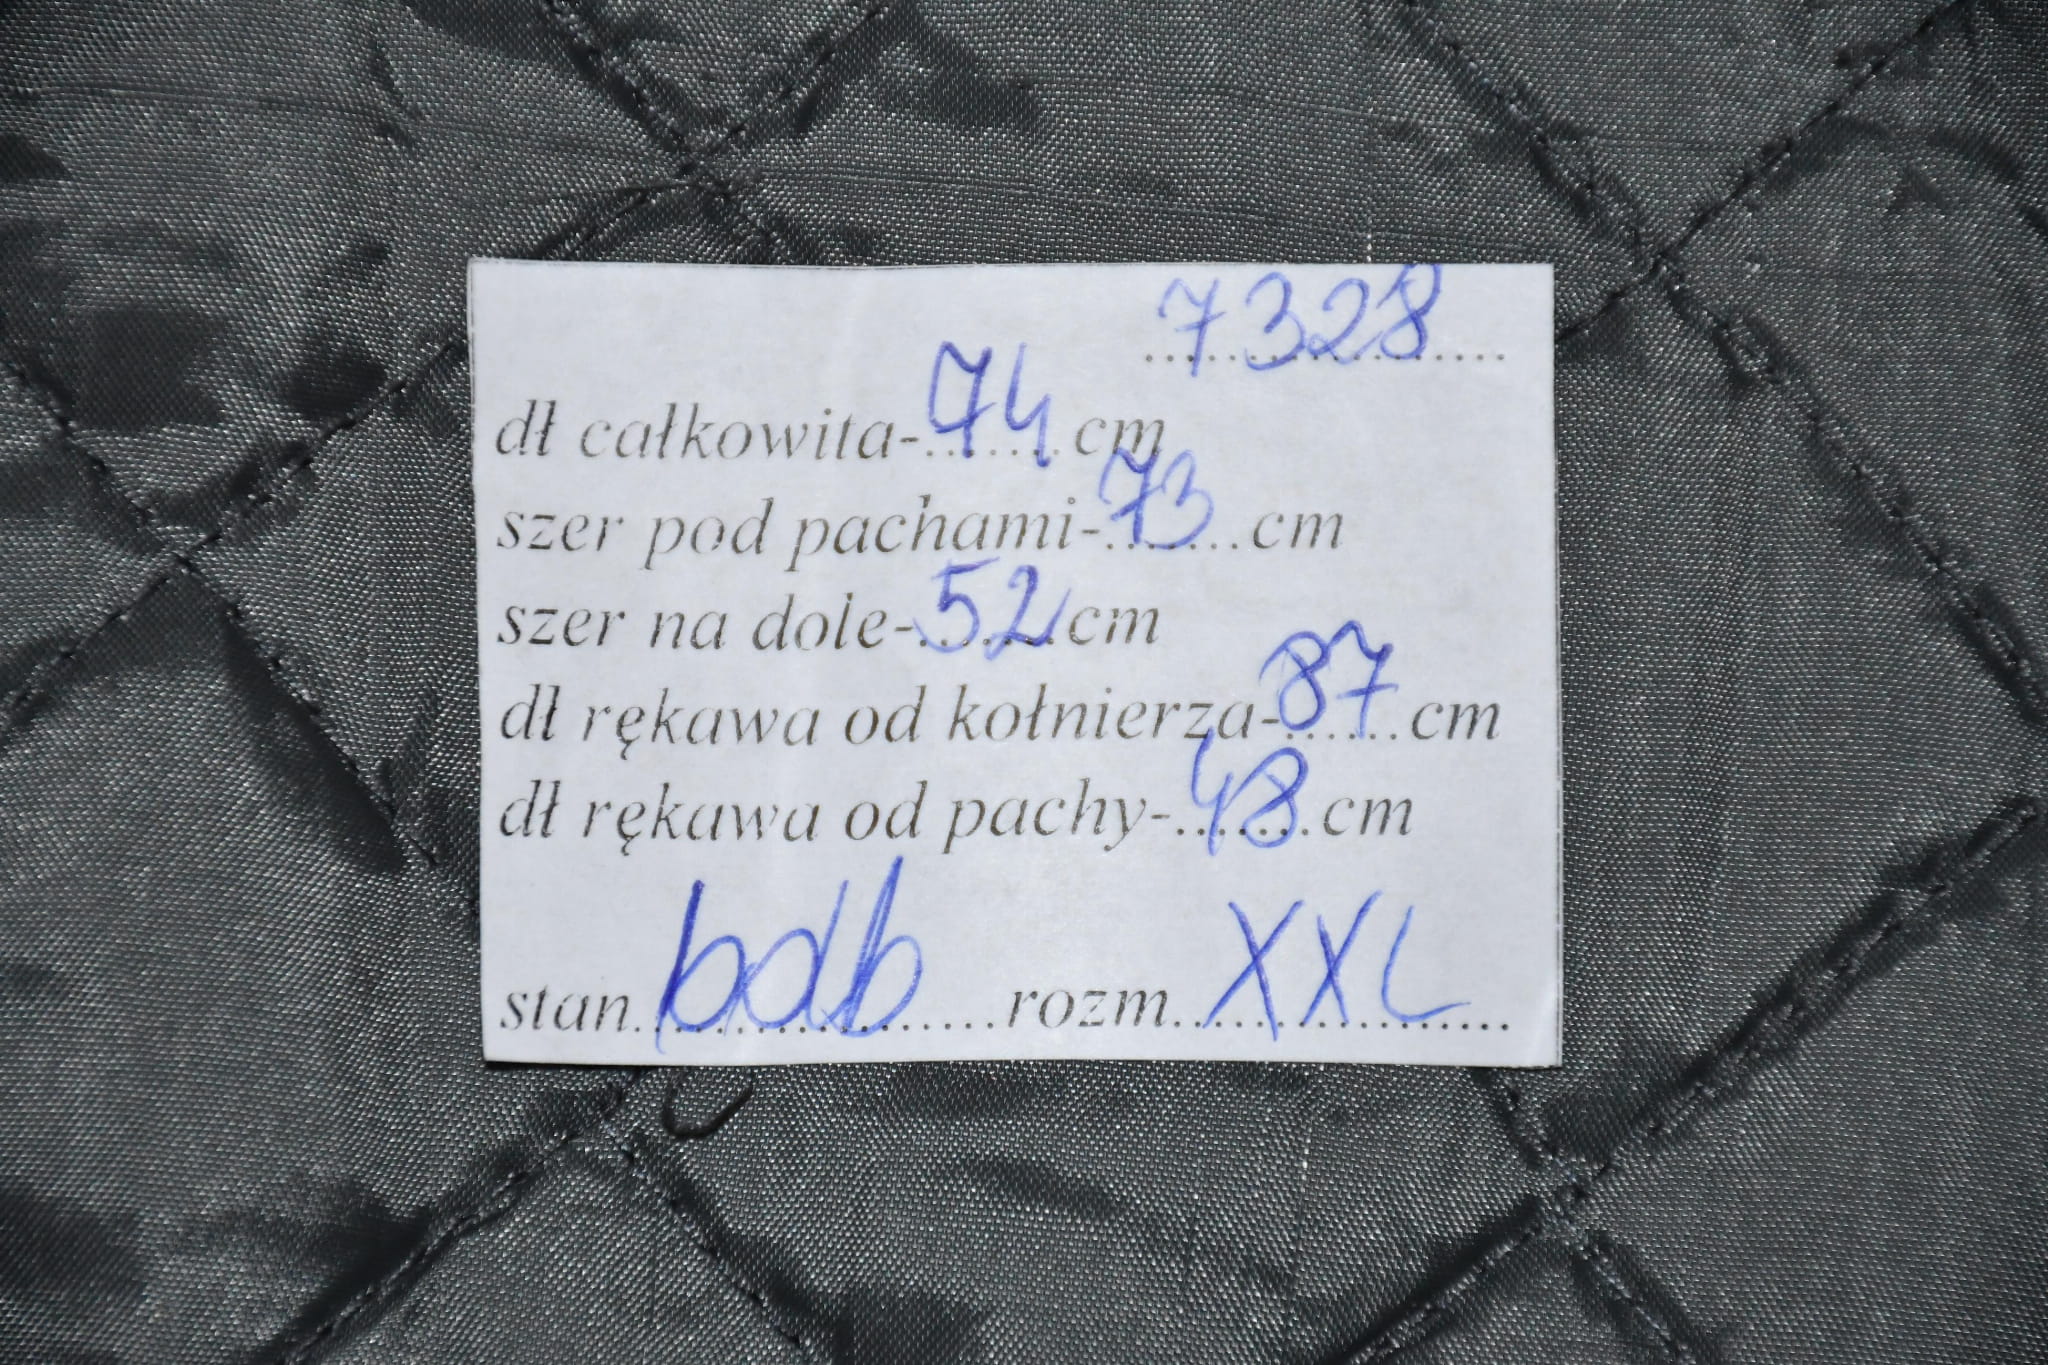 7328
dł całkowita-74 cm
szer pod pachami-73 cm
szer na dole-52 cm
dł rękawa od kołnierza-87 cm
dł rękawa od pachy-48 cm
stan bdb rozm XXL